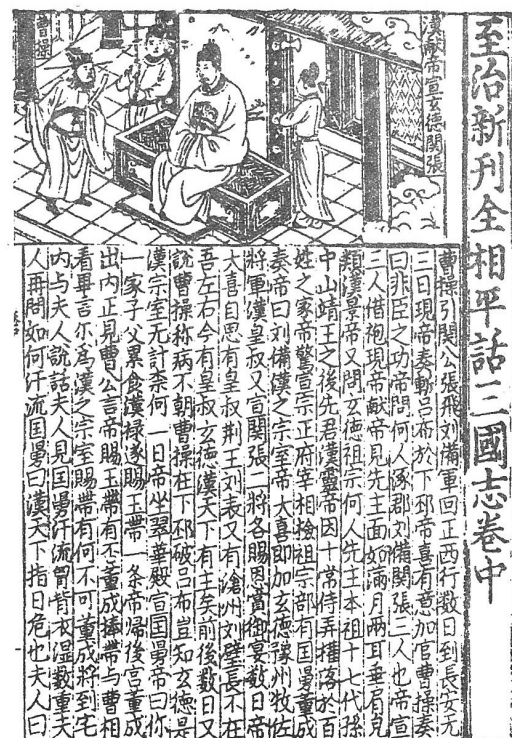 至治新刊全相平話三國志卷中
漢献帝宣玄德関張
曹操
曹操引関公張飛刘備軍回正西行数日到長安无
三日現帝奏斬吕布於下邳帝喜有意加官曹操奏
曰非臣之功帝問何人涿郡刘備関張三人也帝宣
三人借袍現帝献帝見先主面如滿月两耳垂肩皃
類漢景帝又問玄德祖宗何人先主本祖十七代孫
中山靖王之後先君漢靈帝因十常侍弄權落於百
姓之家帝驚宣宗正府宰相捡祖宗部有国舅董成
奏帝曰刘備漢之宗室帝大喜即加玄德豫州牧佐
將軍漢皇叔又宣関張二將各賜恩賞御宴数日帝
大喜自思有皇叔荆王刘表又有滄州刘璧長不在
吾左右今有皇叔玄德漢天下有主矣前後数日又
說曹操称病不朝曹操在下邳破吕布豈知玄德是
漢宗室无計柰何一日帝坐翠華殿宣国舅帝曰你
一家子父累食漢禄遂賜玉帶一条帝歸後宫董成
出内正見曹公言帝賜玉帶有丕董成捧帶与曹相
看畢言尔為漢之宗室賜帶有何不可董成將到宅
内与夫人說話夫人見国舅汗流胷背衣湿数重夫
人再問如何汗流国舅曰漢天下指日危也夫人曰